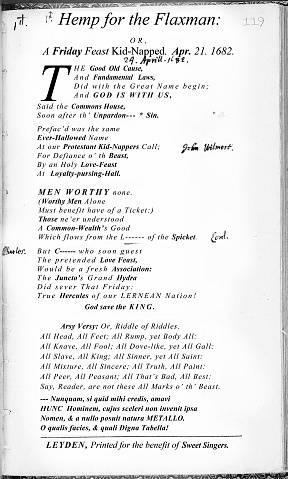 1st. 1st Hemp for the Flaxman: 119
OR,
A Friday Feast Kid-Napped. Apr. 21. 1682.
29. Aprill. 1682.
THE Good Old Cause,
And Fundamental Laws,
Did with the Great Name begin;
And GOD IS WITH US,
Said the Commons House,
Soon after th' Unpardon--- * Sin.
Prefac'd was the same
Ever-Hallowed Name
At our Protestant Kid-Nappers Call; John Wilmore.
For Defiance o' th Beast,
By an Holy Love-Feast
At Loyalty-pursing-Hall.
MEN WORTHY none.
(Worthy Men Alone
Must benefit have of a Ticket:)
Those ne'er understood
A Common-Wealth's Good
Which flows from the L------ of the Spicket. Lord.
Charles. But C----- who soon guest
The pretended Love Feast,
Would be a fresh Association:
The Juncto's Grand Hydra
Did sever That Friday:
True Hercules of our LERNEAN Nation!
God save the KING.
Arsy Versy: Or, Riddle of Riddles.
All Head, All Feet; All Rump, yet Body All:
All Knave, All Fool; All Dove-like, yet All Gall:
All Slave, All King; All Sinner, yet All Saint:
All Mixture, All Sincere; All Truth, All Paint:
All Peer, All Peasant; All That's Bad, All Best:
Say, Reader, are not these All Marks o' th' Beast.
--- Nunquam, si quid mihi credis, amavi
HUNC Hominem, cujus sceleri non invenit ipsa
Nomen, & a nullo posuit natura METALLO.
O qualis facies, & quali Digna Tabella!
LEYDEN, Printed for the benefit of Sweet Singers.